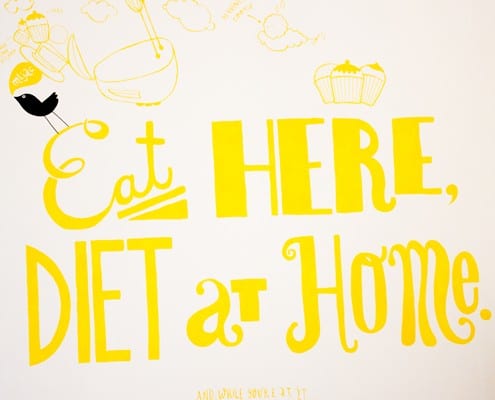 Eat HERE,
DIET at Home.
AND WHILE YOU'RE AT IT